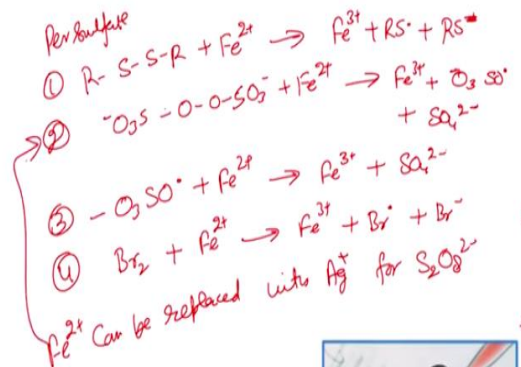 Persulfate
① R-S-S-R + Fe²⁺ → Fe³⁺ + RS• + RS⁻
② ⁻O₃S-O-O-SO₃⁻ + Fe²⁺ → Fe³⁺ + O₃SO•
+ SO₄²⁻
③ -O₃SO• + Fe²⁺ → Fe³⁺ + SO₄²⁻
④ Br₂ + Fe²⁺ → Fe³⁺ + Br• + Br⁻
Fe²⁺ Can be replaced with Ag⁺ for S₂O₈²⁻